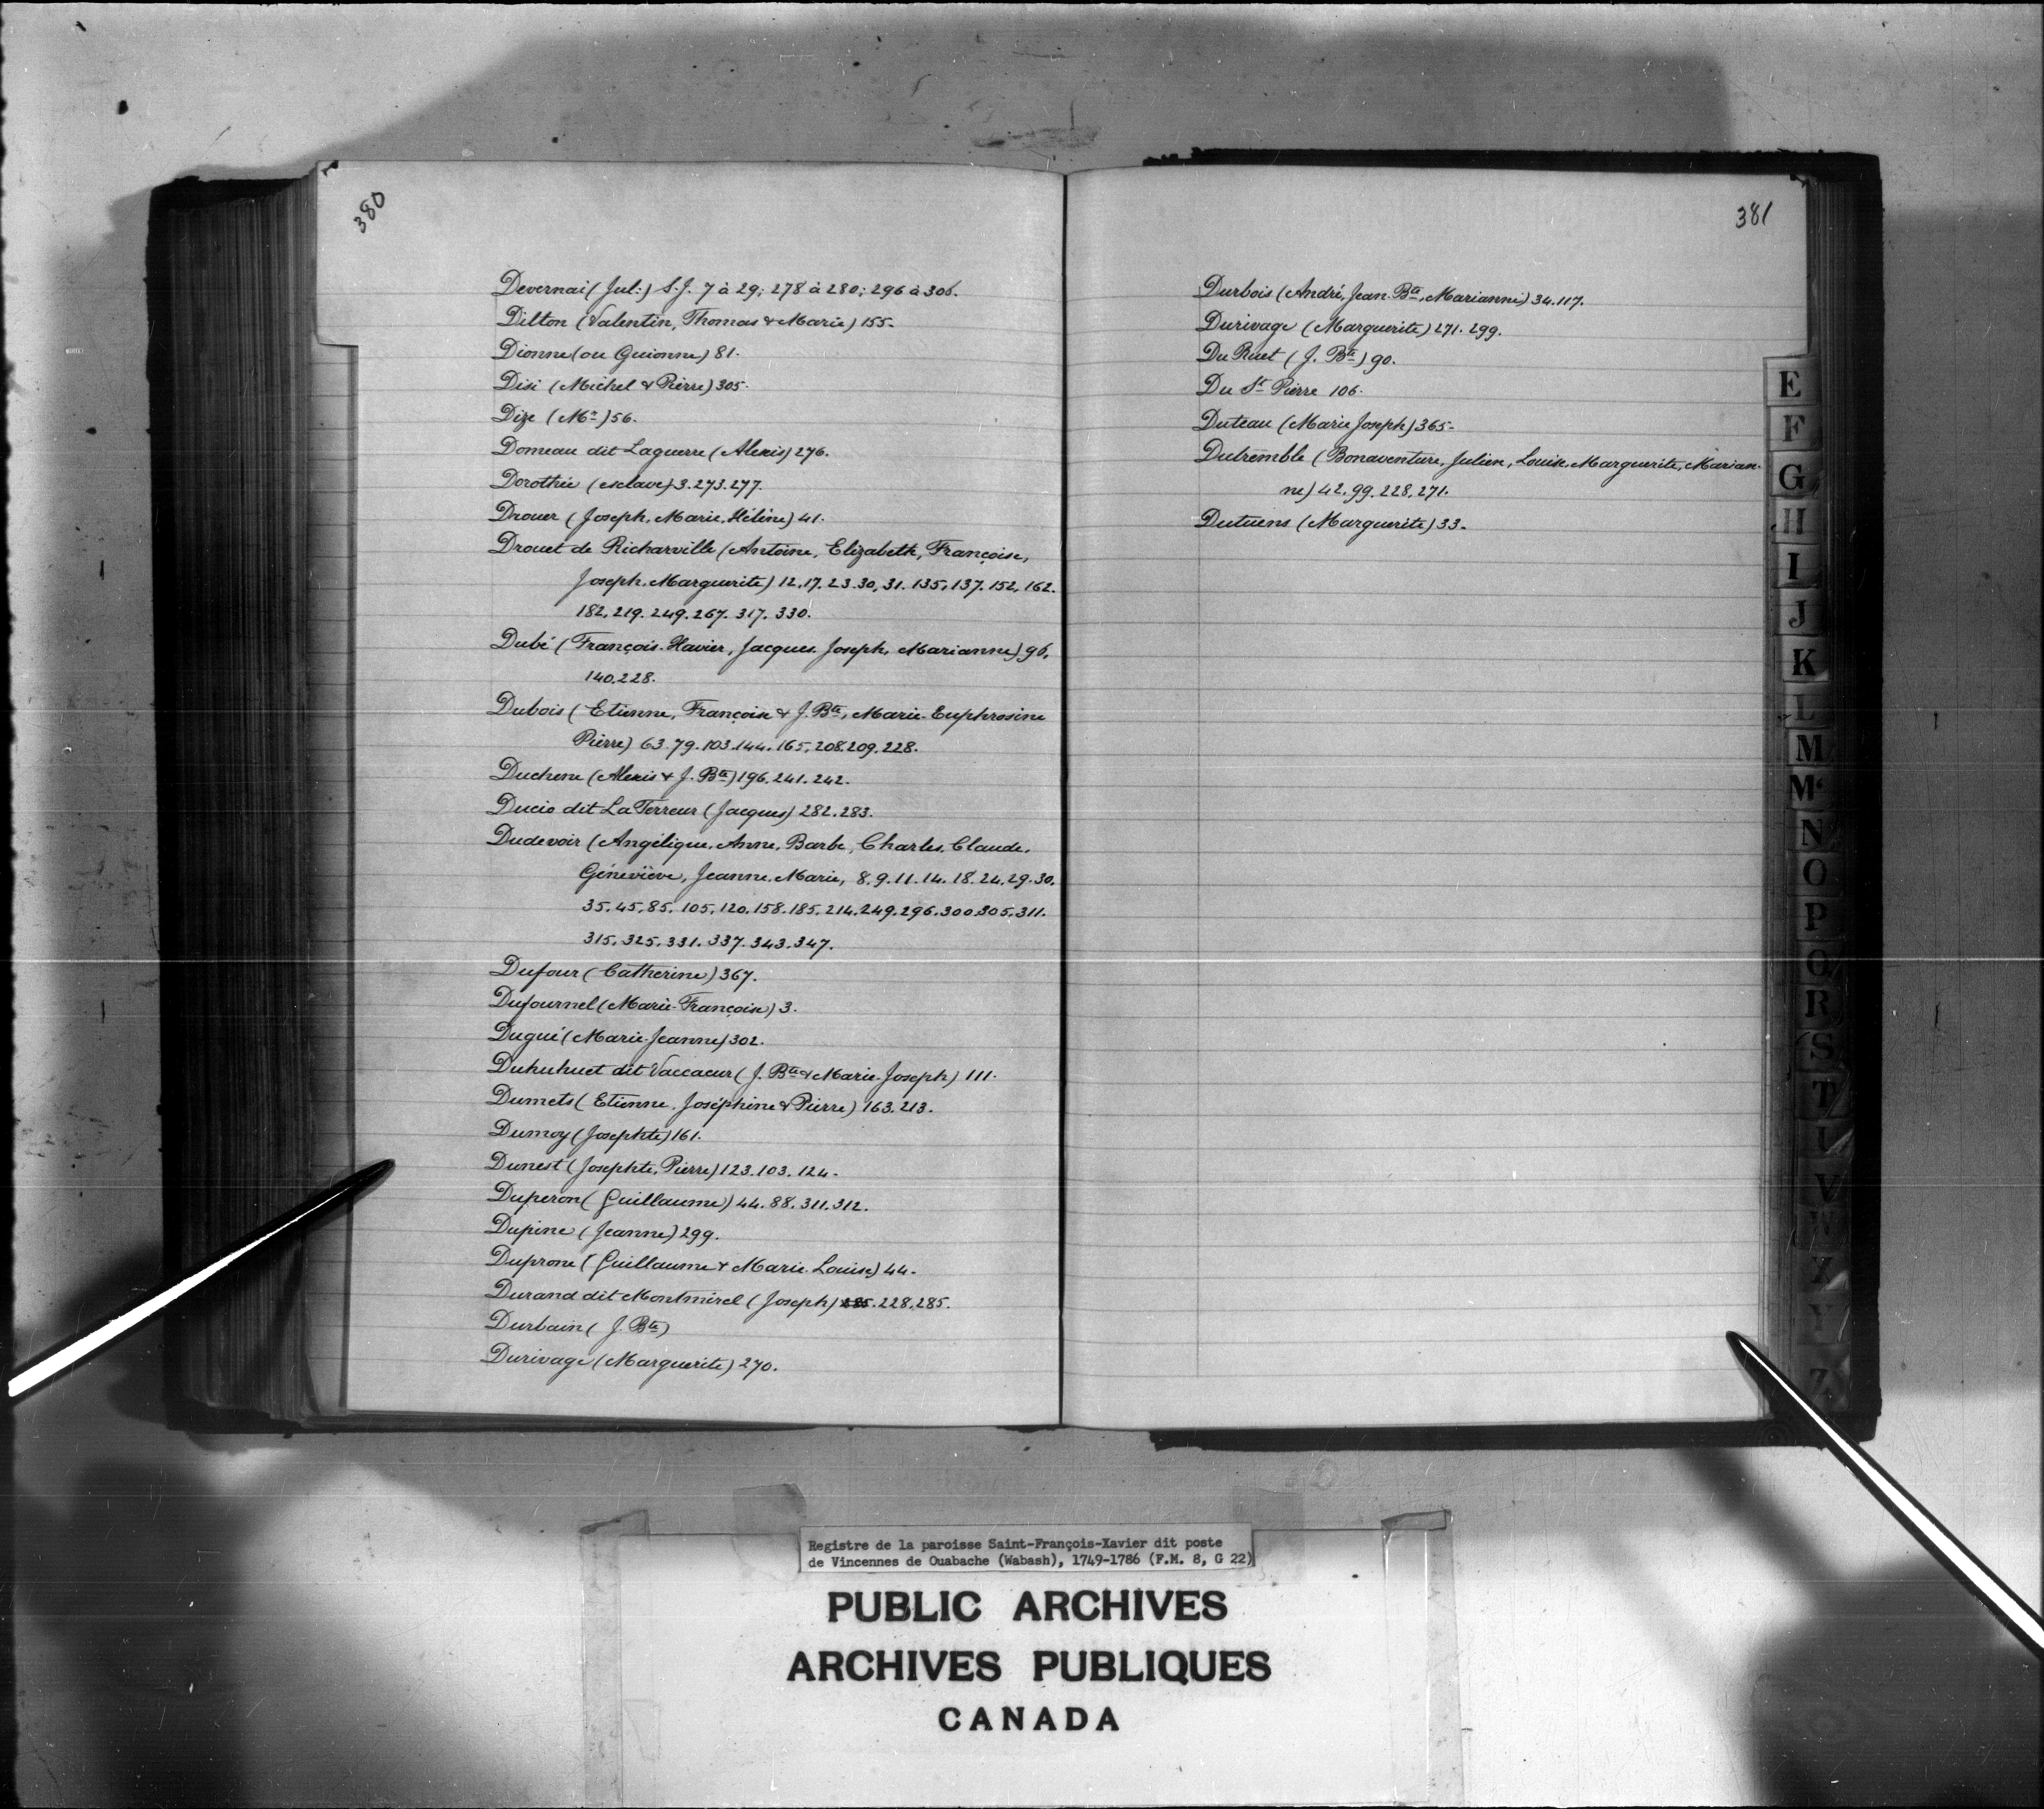 380
Devernai (Jul:) S.J. 7 à 29; 278 à 280; 296 à 306.
Dilton (Valentin, Thomas & Marie) 155.
Dionne (ou Guionne) 81.
Disi (Michel & Pierre) 305.
Dize (Mr) 56.
Domeau dit Laguerre (Alexis) 276.
Dorothée (esclave) 3.273.277.
Drouer (Joseph, Marie, Hélène) 41.
Drouet de Richarville (Antoine, Elizabeth, Françoise,
Joseph, Marguerite) 12.17.23.30.31.135.137.152.162.
182.219.249.267.317.330.
Dubé (François-Xavier, Jacques, Joseph, Marianne) 96,
140.228.
Dubois (Etienne, Françoise & J. Bte, Marie-Euphrosine
Pierre) 63.79.103.144.165.208.209.228.
Duchene (Alexis & J. Bte) 196.241.242.
Ducio dit La Terreur (Jacques) 282.283.
Dudevoir (Angélique, Anne, Barbe, Charles, Claude,
Géneviève, Jeanne, Marie, 8.9.11.14.18.24.29.30.
35.45.85.105.120.158.185.214.249.296.300.305.311.
315.325.331.337.343.347.
Dufour (Catherine) 367.
Dufournel (Marie-Françoise) 3.
Dugué (Marie-Jeanne) 302.
Duhuhuet dit Vaccaeur (J. Bte & Marie-Joseph) 111.
Dumets (Etienne, Joséphine & Pierre) 163.213.
Dumoy (Josephte) 161.
Dunest (Josephte, Pierre) 123.103.124.
Duperon (Guillaume) 44.88.311.312.
Dupine (Jeanne) 299.
Duprone (Guillaume & Marie-Louise) 44.
Durand dit Montmirel (Joseph) 285.228.285.
Durbain (J. Bte)
Durivage (Marguerite) 270.
381
Durbois (André, Jean-Bte, Marianne) 34.117.
Durivage (Marguerite) 271.299.
Du Ruet (J. Bte) 90.
Du St Pierre 106.
Duteau (Marie Joseph) 365.
Dutremble (Bonaventure, Julien, Louise, Marguerite, Marian-
ne) 42.99.228.271.
Dutuens (Marguerite) 33.
E
F
G
H
I
J
K
L
M
Mc
N
O
P
Q
R
S
T
U
V
W
X
Y
Z
Registre de la paroisse Saint-François-Xavier dit poste
de Vincennes de Ouabache (Wabash), 1749-1786 (F.M. 8, G 22)
PUBLIC ARCHIVES
ARCHIVES PUBLIQUES
CANADA